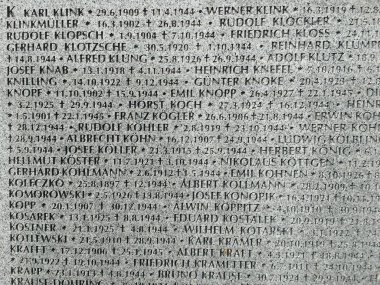 K KARL KLINK * 29.6.1909 † 11.4.1944 * WERNER KLINK * 16.3.1919 †
KLINKMÜLLER * 16.3.1902 † 26.8.1944 * RUDOLF KLÖCKLER * 21.5.
RUDOLF KLOPSCH * 1.9.1904 † 7.10.1944 * FRIEDRICH KLOSS *
GERHARD KLOTZSCHE * 30.5.1920 † 1.10.1944 * REINHARD KLUMPP
† 14.8.1944 * ALFRED KLUNG * 25.8.1926 † 26.9.1944 * ALOIS KLUTZ *
JOSEF KNAB * 13.1.1918 † 4.11.1944 * HEINRICH KNEFEL * 16.10.1
KNILLING * 14.10.1922 † 9.12.1944 * GÜNTER KNOK * 20.4.192
KNOPF * 11.10.1902 † 15.9.1944 * EMIL KNOPP * 26.4.1927 † 22.1
* 3.2.1925 † 29.9.1944 * HORST KOCH * 27.3.1924 † 16.12.1944 * HEIN
† 1.5.1901 † 22.1.1945 * FRANZ KÖGLER * 20.6.1906 † 21.8.1944 * ERWIN KÖH
* 28.12.1944 * RUDOLF KÖHLER * 2.8.1919 † 23.10.1944 * WERNER KÖH
† 28.9.1944 * ALBRECHT KÖHN * 16.12.1907 † 24.9.1944 * LUDWIG KÖLBLIN
† 5.9.1944 * JOSEF KÖLLER * 21.3.1925 † 25.9.1944 * HERBERT KÖNIG *
HELLMUT KÖSTER * 11.7.1921 † 3.10.1944 * NIKOLAUS KÖTTGEN *
GERHARD KOHLMANN * 2.6.1912 † 3.11.1944 * EMIL KOHNEN * 8.10.1926 †
KOLECZKO * 25.8.1897 † 12.1944 * ALBERT KOLLMANN * 28.2.1909
KOMOROWSKI * 2.5.1926 † 13.8.1944 * JOSEF KONOPIK * 16.4.1907 †
KOPP * 20.1.1907 † 30.12.1944 * ALWIN KÖPPITZ * 20.10.1924
KOSAREK * 13.5.1925 † 8.8.1944 * EDUARD KOSTALEK *
KOSTNER * 21.1.1925 † 4.8.1944 * WILHELM KOTARSKI *
KOTLEWSKI * 21.5.1910 † 28.9.1944 * KARL KRAMER *
KRAFFT * 17.12.1906 † 25.1.1945 * ALBERT KRAFT *
* 21.9.1922 † 19.10.1944 * FRIEDRICH KRAMETTER *
KRAPP * 23.1.1913 † 4.8.1944 * BRUNO KRAUSE *
KRAUSE